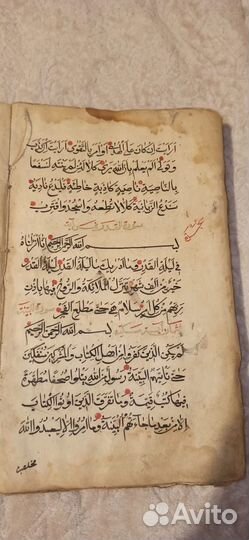 ارايت ان كان على الهدى او امر بالتقوى ارايت ان كذب
وتولى الم يعلم بان الله يرى كلا لئن لم ينته لنسفعا
بالناصية ناصية كاذبة خاطئة فليدع ناديه
سندع الزبانية كلا لا تطعه واسجد واقترب
سورة القدر
بسم الله الرحمن الرحيم انا انزلناه
في ليلة القدر وما ادريك ما ليلة القدر ليلة القدر
خير من الف شهر تنزل الملئكة والروح فيها باذن
ربهم من كل امر سلام هي حتى مطلع الفجر
بسم الله الرحمن الرحيم
لم يكن الذين كفروا من اهل الكتاب والمشركين منفكين
حتى تاتيهم البينة رسول من الله يتلوا صحفا مطهرة
فيها كتب قيمة وما تفرق الذين اوتوا الكتاب
الا من بعد ما جاءتهم البينة وما امروا الا ليعبدوا الله
مخلصين
Avito